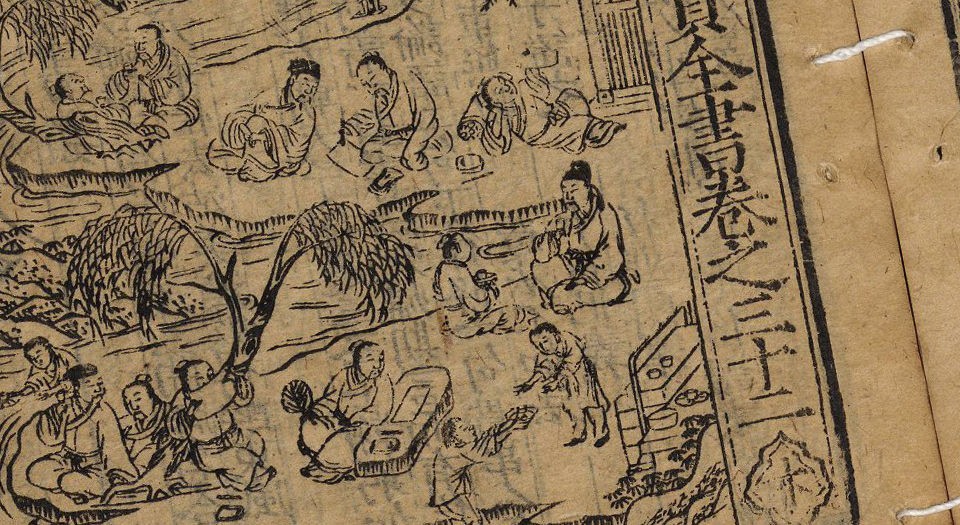 全書卷之三十二